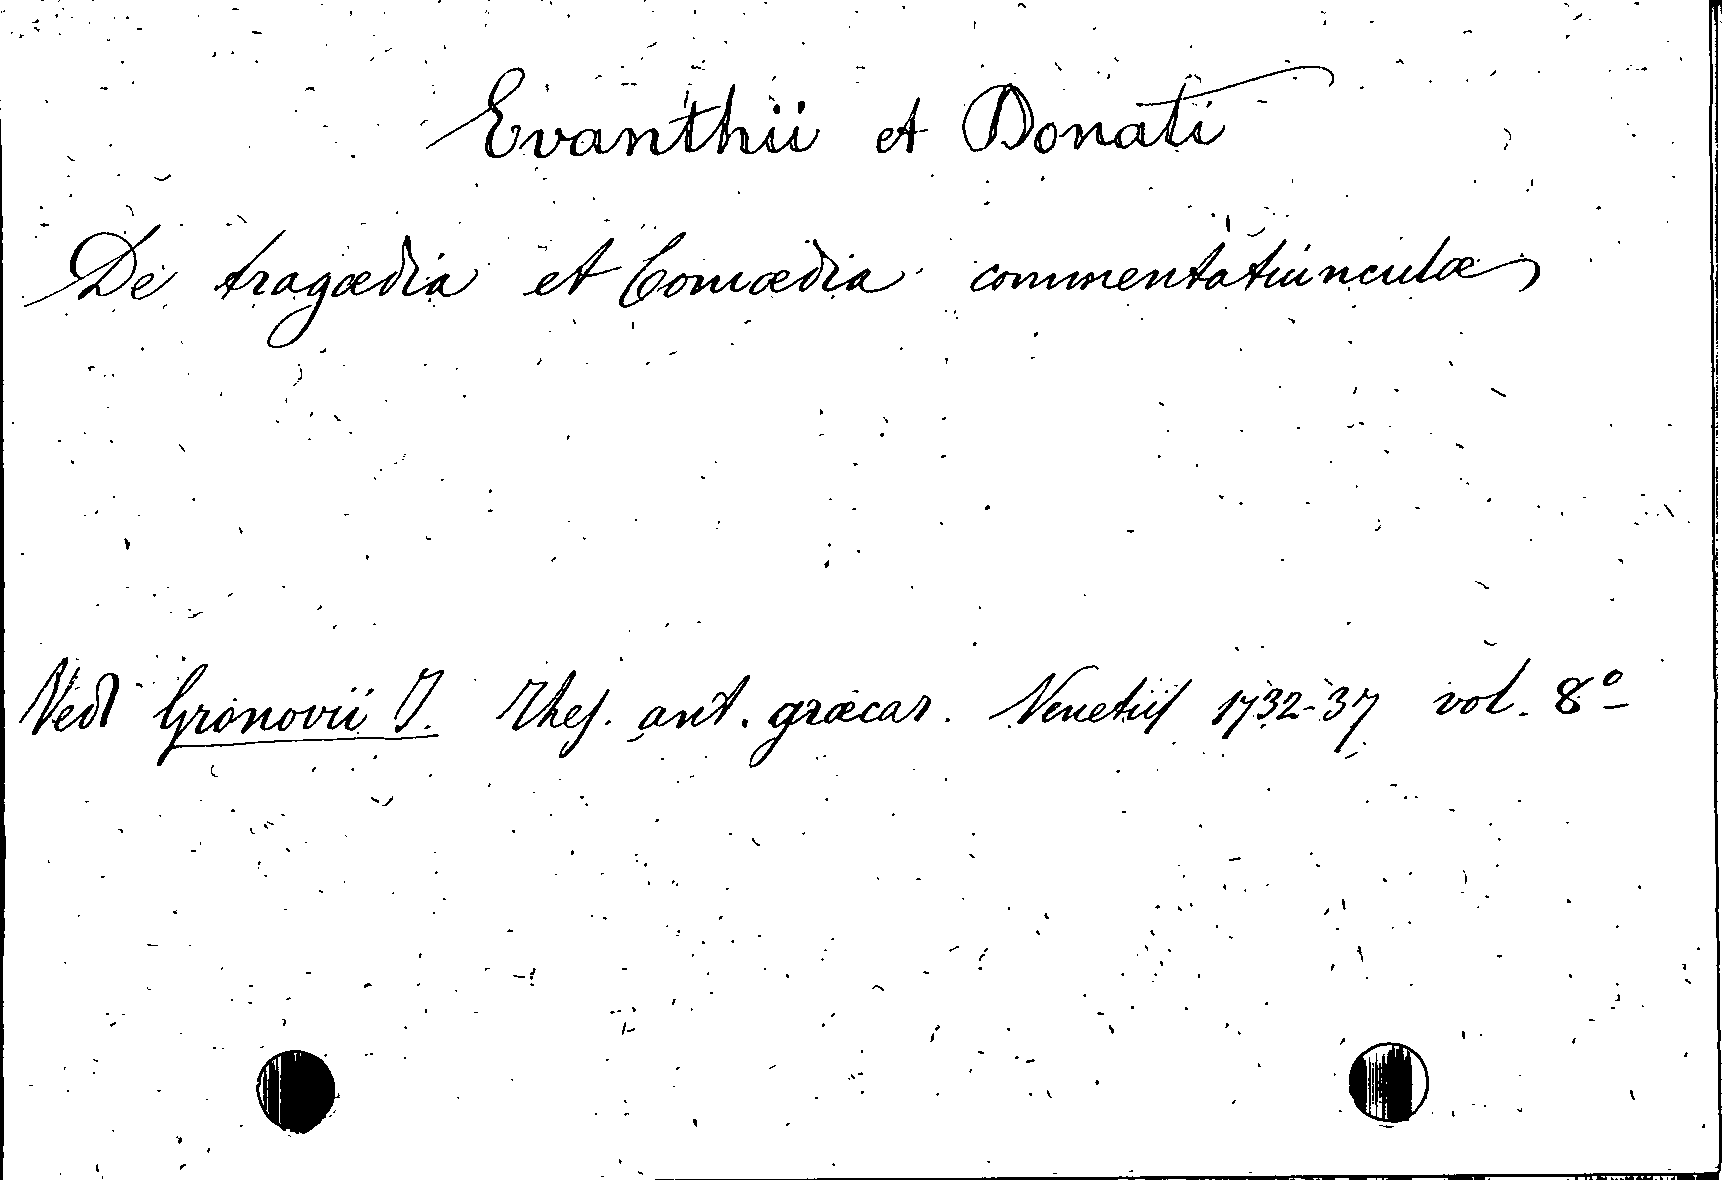 Evanthii et Donati
De tragœdia et Comœdia commentatiunculæ
Vedi Gronovii J. Thes. ant. græcar. Venetiis 1732-37 vol. 8º